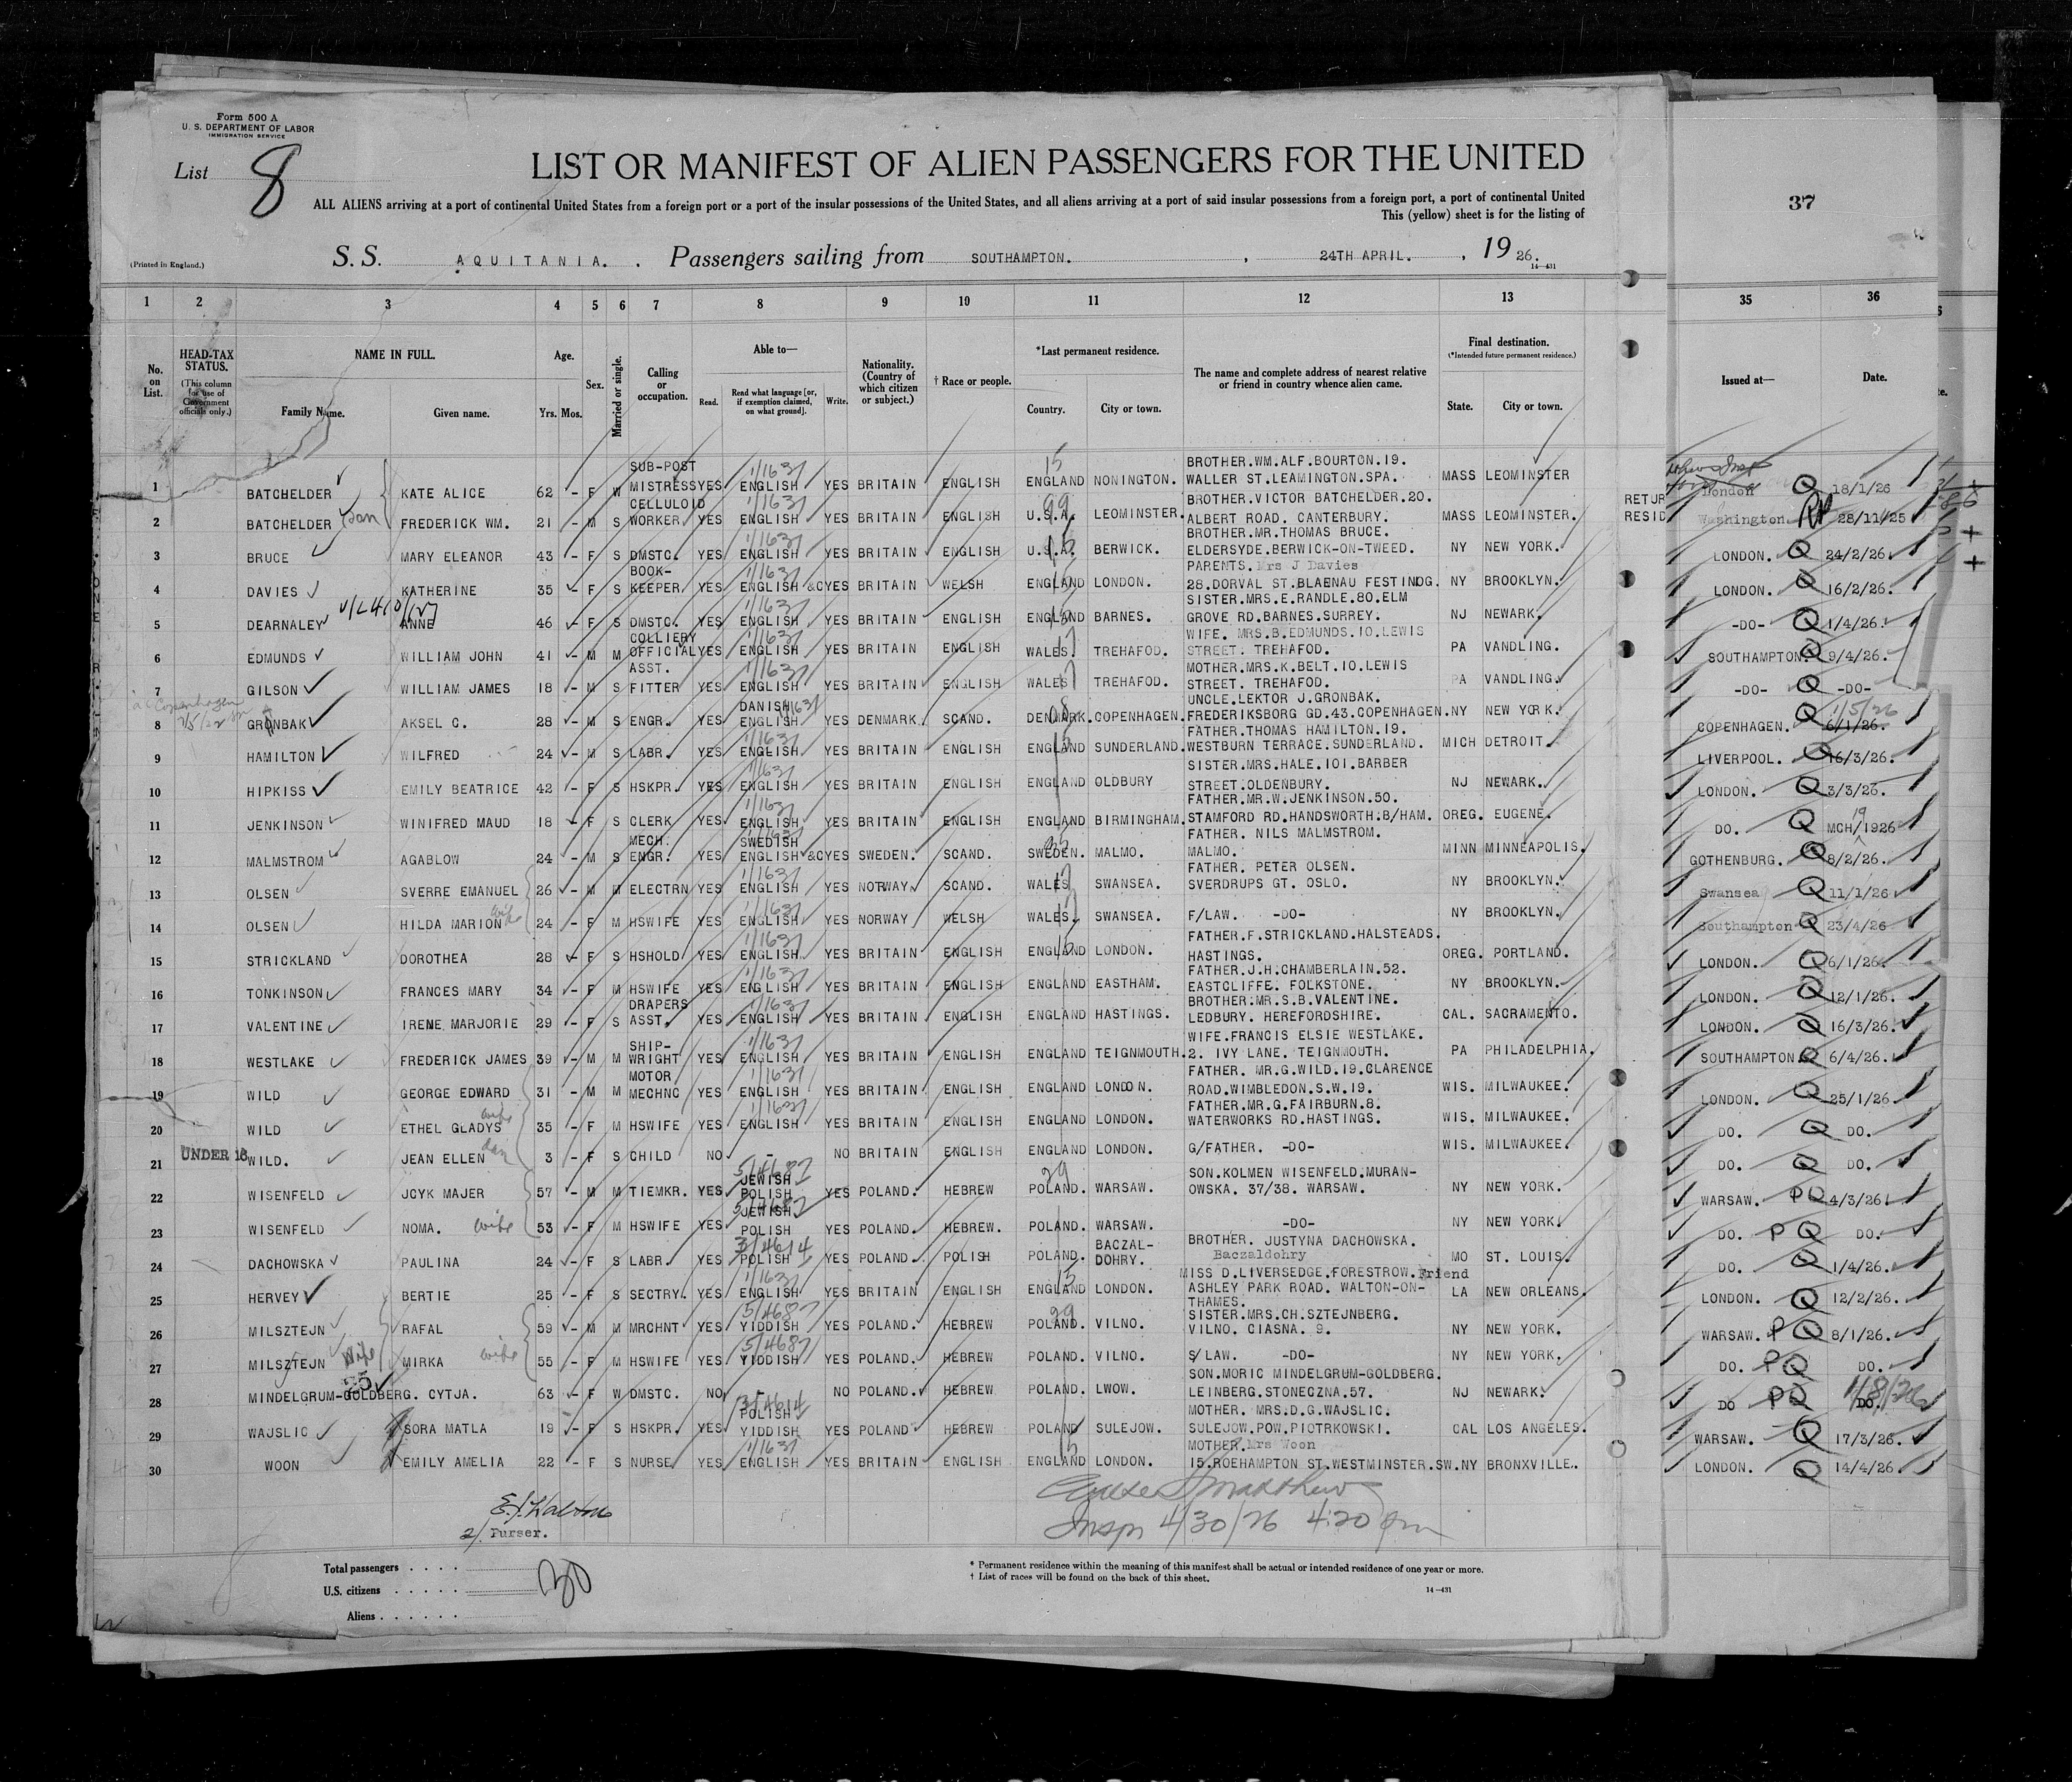 Form 500 A
U. S. DEPARTMENT OF LABOR
IMMIGRATION SERVICE
List 8
LIST OR MANIFEST OF ALIEN PASSENGERS FOR THE UNITED
37
ALL ALIENS arriving at a port of continental United States from a foreign port or a port of the insular possessions of the United States, and all aliens arriving at a port of said insular possessions from a foreign port, a port of continental United
This (yellow) sheet is for the listing of
(Printed in England.)
S. S. AQUITANIA. Passengers sailing from SOUTHAMPTON. , 24TH APRIL. , 19 26.
14-431
1 2 3 4 5 6 7 8 9 10 11 12 13 35 36
No. on List.
HEAD-TAX STATUS.
(This column for use of Government officials only.)
NAME IN FULL.
Family Name. Given name.
Age.
Yrs. Mos.
Sex.
Married or single.
Calling or occupation.
Able to—
Read. Read what language [or, if exemption claimed, on what ground]. Write.
Nationality. (Country of which citizen or subject.)
† Race or people.
*Last permanent residence.
Country. City or town.
The name and complete address of nearest relative or friend in country whence alien came.
Final destination.
(*Intended future permanent residence.)
State. City or town.
Issued at— Date.
1 BATCHELDER KATE ALICE 62 - F W SUB-POST MISTRESS YES ENGLISH YES BRITAIN ENGLISH ENGLAND NONINGTON. BROTHER.WM.ALF.BOURTON.19. WALLER ST.LEAMINGTON.SPA. MASS LEOMINSTER London 18/1/26
2 BATCHELDER FREDERICK WM. 21 - M S CELLULOID WORKER YES ENGLISH YES BRITAIN ENGLISH U.S.A. LEOMINSTER. BROTHER.VICTOR BATCHELDER.20. ALBERT ROAD. CANTERBURY. MASS LEOMINSTER. RETUR RESID Washington 28/11/25
3 BRUCE MARY ELEANOR 43 - F S DMSTC. YES ENGLISH YES BRITAIN ENGLISH U.S.A. BERWICK. BROTHER.MR.THOMAS BRUCE. ELDERSYDE.BERWICK-ON-TWEED. NY NEW YORK. LONDON. Q 24/2/26.
4 DAVIES KATHERINE 35 - F S BOOK-KEEPER YES ENGLISH &C YES BRITAIN WELSH ENGLAND LONDON. PARENTS. Mrs J Davies 28.DORVAL ST.BLAENAU FESTINOG. NY BROOKLYN. LONDON. Q 16/2/26.
5 DEARNALEY ANNE 46 - F S DMSTC. YES ENGLISH YES BRITAIN ENGLISH ENGLAND BARNES. SISTER.MRS.E.RANDLE.80.ELM GROVE RD.BARNES.SURREY. NJ NEWARK. -DO- Q 1/4/26.
6 EDMUNDS WILLIAM JOHN 41 - M M COLLIERY OFFICIAL YES ENGLISH YES BRITAIN ENGLISH WALES. TREHAFOD. WIFE. MRS.B.EDMUNDS.10.LEWIS STREET. TREHAFOD. PA VANDLING. SOUTHAMPTON. Q 9/4/26.
7 GILSON WILLIAM JAMES 18 - M S ASST. FITTER YES ENGLISH YES BRITAIN ENGLISH WALES TREHAFOD. MOTHER.MRS.K.BELT.10.LEWIS STREET. TREHAFOD. PA VANDLING. -DO- Q -DO-
8 GRONBAK AKSEL C. 28 - M S ENGR. YES DANISH ENGLISH YES DENMARK. SCAND. DENMARK. COPENHAGEN. UNCLE.LEKTOR J.GRONBAK. FREDERIKSBORG GD.43.COPENHAGEN. NY NEW YORK. COPENHAGEN. Q 6/1/26. 1/5/26
9 HAMILTON WILFRED 24 - M S LABR. YES ENGLISH YES BRITAIN ENGLISH ENGLAND SUNDERLAND. FATHER.THOMAS HAMILTON.19. WESTBURN TERRACE.SUNDERLAND. MICH DETROIT. LIVERPOOL. Q 16/3/26.
10 HIPKISS EMILY BEATRICE 42 - F S HSKPR. YES ENGLISH YES BRITAIN ENGLISH ENGLAND OLDBURY SISTER.MRS.HALE.101.BARBER STREET.OLDENBURY. NJ NEWARK. LONDON. Q 3/3/26.
11 JENKINSON WINIFRED MAUD 18 - F S CLERK YES ENGLISH YES BRITAIN ENGLISH ENGLAND BIRMINGHAM. FATHER.MR.W.JENKINSON.50. STAMFORD RD.HANDSWORTH.B/HAM. OREG. EUGENE. DO. Q MCH/19 1926
12 MALMSTROM AGABLOW 24 - M S MECH. ENGR. YES SWEDISH ENGLISH &C YES SWEDEN. SCAND. SWEDEN. MALMO. FATHER. NILS MALMSTROM. MALMO. MINN MINNEAPOLIS. GOTHENBURG. Q 8/2/26.
13 OLSEN SVERRE EMANUEL 26 - M M ELECTRN YES ENGLISH YES NORWAY. SCAND. WALES SWANSEA. FATHER. PETER OLSEN. SVERDRUPS GT. OSLO. NY BROOKLYN. Swansea Q 11/1/26
14 OLSEN HILDA MARION wife 24 - F M HSWIFE YES ENGLISH YES NORWAY WELSH WALES. SWANSEA. F/LAW. -DO- NY BROOKLYN. Southampton Q 23/4/26
15 STRICKLAND DOROTHEA 28 - F S HSHOLD YES ENGLISH YES BRITAIN ENGLISH ENGLAND LONDON. FATHER.F.STRICKLAND.HALSTEADS. HASTINGS. OREG. PORTLAND. LONDON. Q 6/1/26.
16 TONKINSON FRANCES MARY 34 - F M HSWIFE YES ENGLISH YES BRITAIN ENGLISH ENGLAND EASTHAM. FATHER.J.H.CHAMBERLAIN.52. EASTCLIFFE. FOLKSTONE. NY BROOKLYN. LONDON. Q 12/1/26.
17 VALENTINE IRENE MARJORIE 29 - F S DRAPERS ASST. YES ENGLISH YES BRITAIN ENGLISH ENGLAND HASTINGS. BROTHER.MR.S.B.VALENTINE. LEDBURY. HEREFORDSHIRE. CAL. SACRAMENTO. LONDON. Q 16/3/26.
18 WESTLAKE FREDERICK JAMES 39 - M M SHIP-WRIGHT YES ENGLISH YES BRITAIN ENGLISH ENGLAND TEIGNMOUTH. WIFE.FRANCIS ELSIE WESTLAKE. 2. IVY LANE. TEIGNMOUTH. PA PHILADELPHIA. SOUTHAMPTON Q 6/4/26.
19 WILD GEORGE EDWARD 31 - M M MOTOR MECHNC YES ENGLISH YES BRITAIN ENGLISH ENGLAND LONDON. FATHER. MR.G.WILD.19.CLARENCE ROAD.WIMBLEDON.S.W.19. WIS. MILWAUKEE. LONDON. Q 25/1/26
20 WILD ETHEL GLADYS wife 35 - F M HSWIFE YES ENGLISH YES BRITAIN ENGLISH ENGLAND LONDON. FATHER.MR.G.FAIRBURN.8. WATERWORKS RD.HASTINGS. WIS. MILWAUKEE. DO. Q DO.
21 UNDER 16 WILD. JEAN ELLEN dau 3 - F S CHILD NO - NO BRITAIN ENGLISH ENGLAND LONDON. G/FATHER. -DO- WIS. MILWAUKEE. DO. Q DO.
22 WISENFELD JCYK MAJER 57 - M M TIEMKR. YES JEWISH POLISH YES POLAND. HEBREW POLAND. WARSAW. SON.KOLMEN WISENFELD.MURAN-OWSKA. 37/38. WARSAW. NY NEW YORK. WARSAW. PQ 4/3/26.
23 WISENFELD NOMA. wife 53 - F M HSWIFE YES JEWISH POLISH YES POLAND. HEBREW. POLAND. WARSAW. -DO- NY NEW YORK. DO. PQ DO.
24 DACHOWSKA PAULINA 24 - F S LABR. YES POLISH YES POLAND. POLISH POLAND. BACZAL-DOHRY. BROTHER. JUSTYNA DACHOWSKA. Baczaldohry MO ST. LOUIS. DO. Q 1/4/26.
25 HERVEY BERTIE 25 - F S SECTRY. YES ENGLISH YES BRITAIN ENGLISH ENGLAND LONDON. MISS D.LIVERSEDGE.FORESTROW. Friend ASHLEY PARK ROAD. WALTON-ON-THAMES. LA NEW ORLEANS. LONDON. Q 12/2/26.
26 MILSZTEJN RAFAL 59 - M M MRCHNT YES YIDDISH YES POLAND. HEBREW POLAND. VILNO. SISTER.MRS.CH.SZTEJNBERG. VILNO. CIASNA. 9. NY NEW YORK. WARSAW. PQ 8/1/26.
27 MILSZTEJN MIRKA wife 55 - F M HSWIFE YES YIDDISH YES POLAND. HEBREW POLAND. VILNO. S/LAW. -DO- NY NEW YORK. DO. PQ DO.
28 MINDELGRUM-GOLDBERG. CYTJA. 63 - F W DMSTC. NO - NO POLAND. HEBREW POLAND. LWOW. SON.MORIC MINDELGRUM-GOLDBERG. LEINBERG.STONECZNA.57. NJ NEWARK. DO PQ DO. 1/8/26
29 WAJSLIC SORA MATLA 19 - F S HSKPR. YES POLISH YIDDISH YES POLAND HEBREW POLAND SULEJOW. MOTHER. MRS.D.G.WAJSLIC. SULEJOW.POW.PIOTRKOWSKI. CAL LOS ANGELES. WARSAW. Q 17/3/26.
30 WOON EMILY AMELIA 22 - F S NURSE YES ENGLISH YES BRITAIN ENGLISH ENGLAND LONDON. MOTHER. Mrs Woon 15.ROEHAMPTON ST.WESTMINSTER.SW. NY BRONXVILLE. LONDON. Q 14/4/26.
2/ Purser.
Insp 4/30/26 4:20 pm
Total passengers . . . .
U.S. citizens . . . . . 30
Aliens . . . . . .
* Permanent residence within the meaning of this manifest shall be actual or intended residence of one year or more.
† List of races will be found on the back of this sheet.
14-431